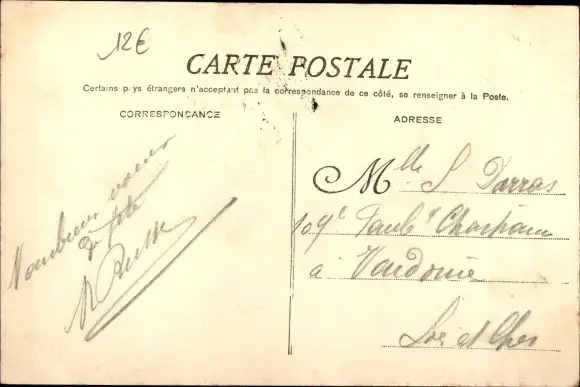 12€
CARTE POSTALE
Certains pays étrangers n'acceptant pas la correspondance de ce côté, se renseigner à la Poste.
CORRESPONDANCE
ADRESSE
Nombreux vœux
de fête
Mlle S Darras
à
Loir et Cher